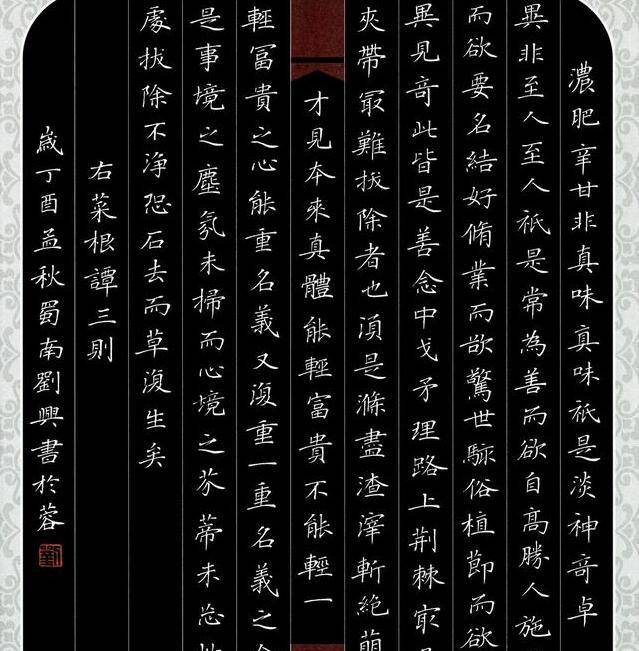 濃肥辛甘非真味真味祇是淡神奇卓
異非至人至人祇是常為善而欲自高勝人施
而欲要名結好脩業而欲驚世駭俗植節而欲
異見奇此皆是善念中戈矛理路上荆棘冣
夾帶冣難拔除者也須是滌盡渣滓斬絶萌
才見本來真體能輕富貴不能輕一
輕富貴之心能重名義又復重一重名義之
是事境之塵氛未掃而心境之芥蒂未忘
處拔除不淨恐石去而草復生矣
右菜根譚三則
歲丁酉孟秋蜀南劉興書於蓉
劉